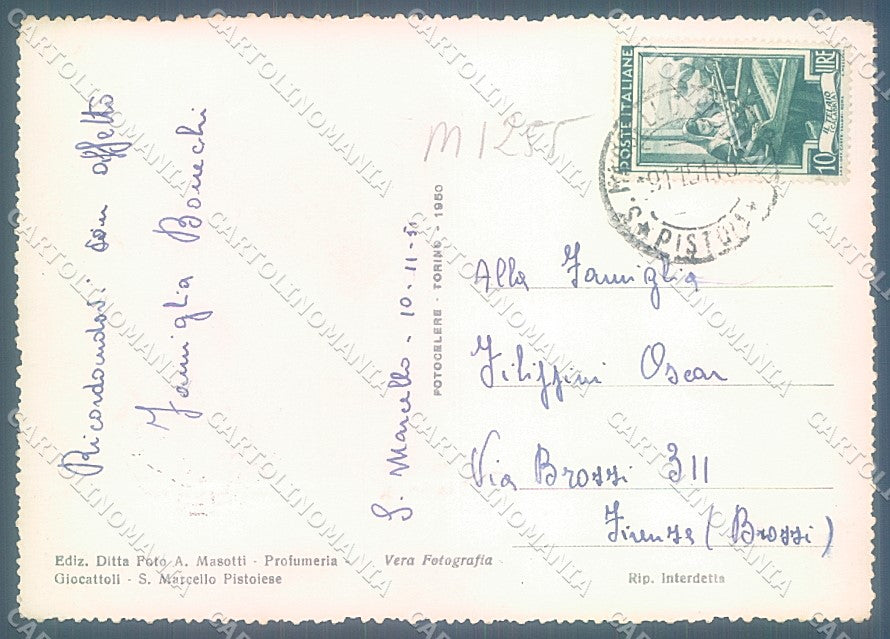 Ricordandosi con affetto
Famiglia Bonechi
S. Marcello - 10-11-51
M1255
FOTOCELERE - TORINO - 1950
POSTE ITALIANE
LIRE
10
PISTOIA
Alla Famiglia
Filippini Oscar
Via Brozzi 311
Firenze (Brozzi)
Ediz. Ditta Foto A. Masotti - Profumeria -
Giocattoli - S. Marcello Pistoiese
Vera Fotografia
Rip. Interdetta
CARTOLINOMANIA